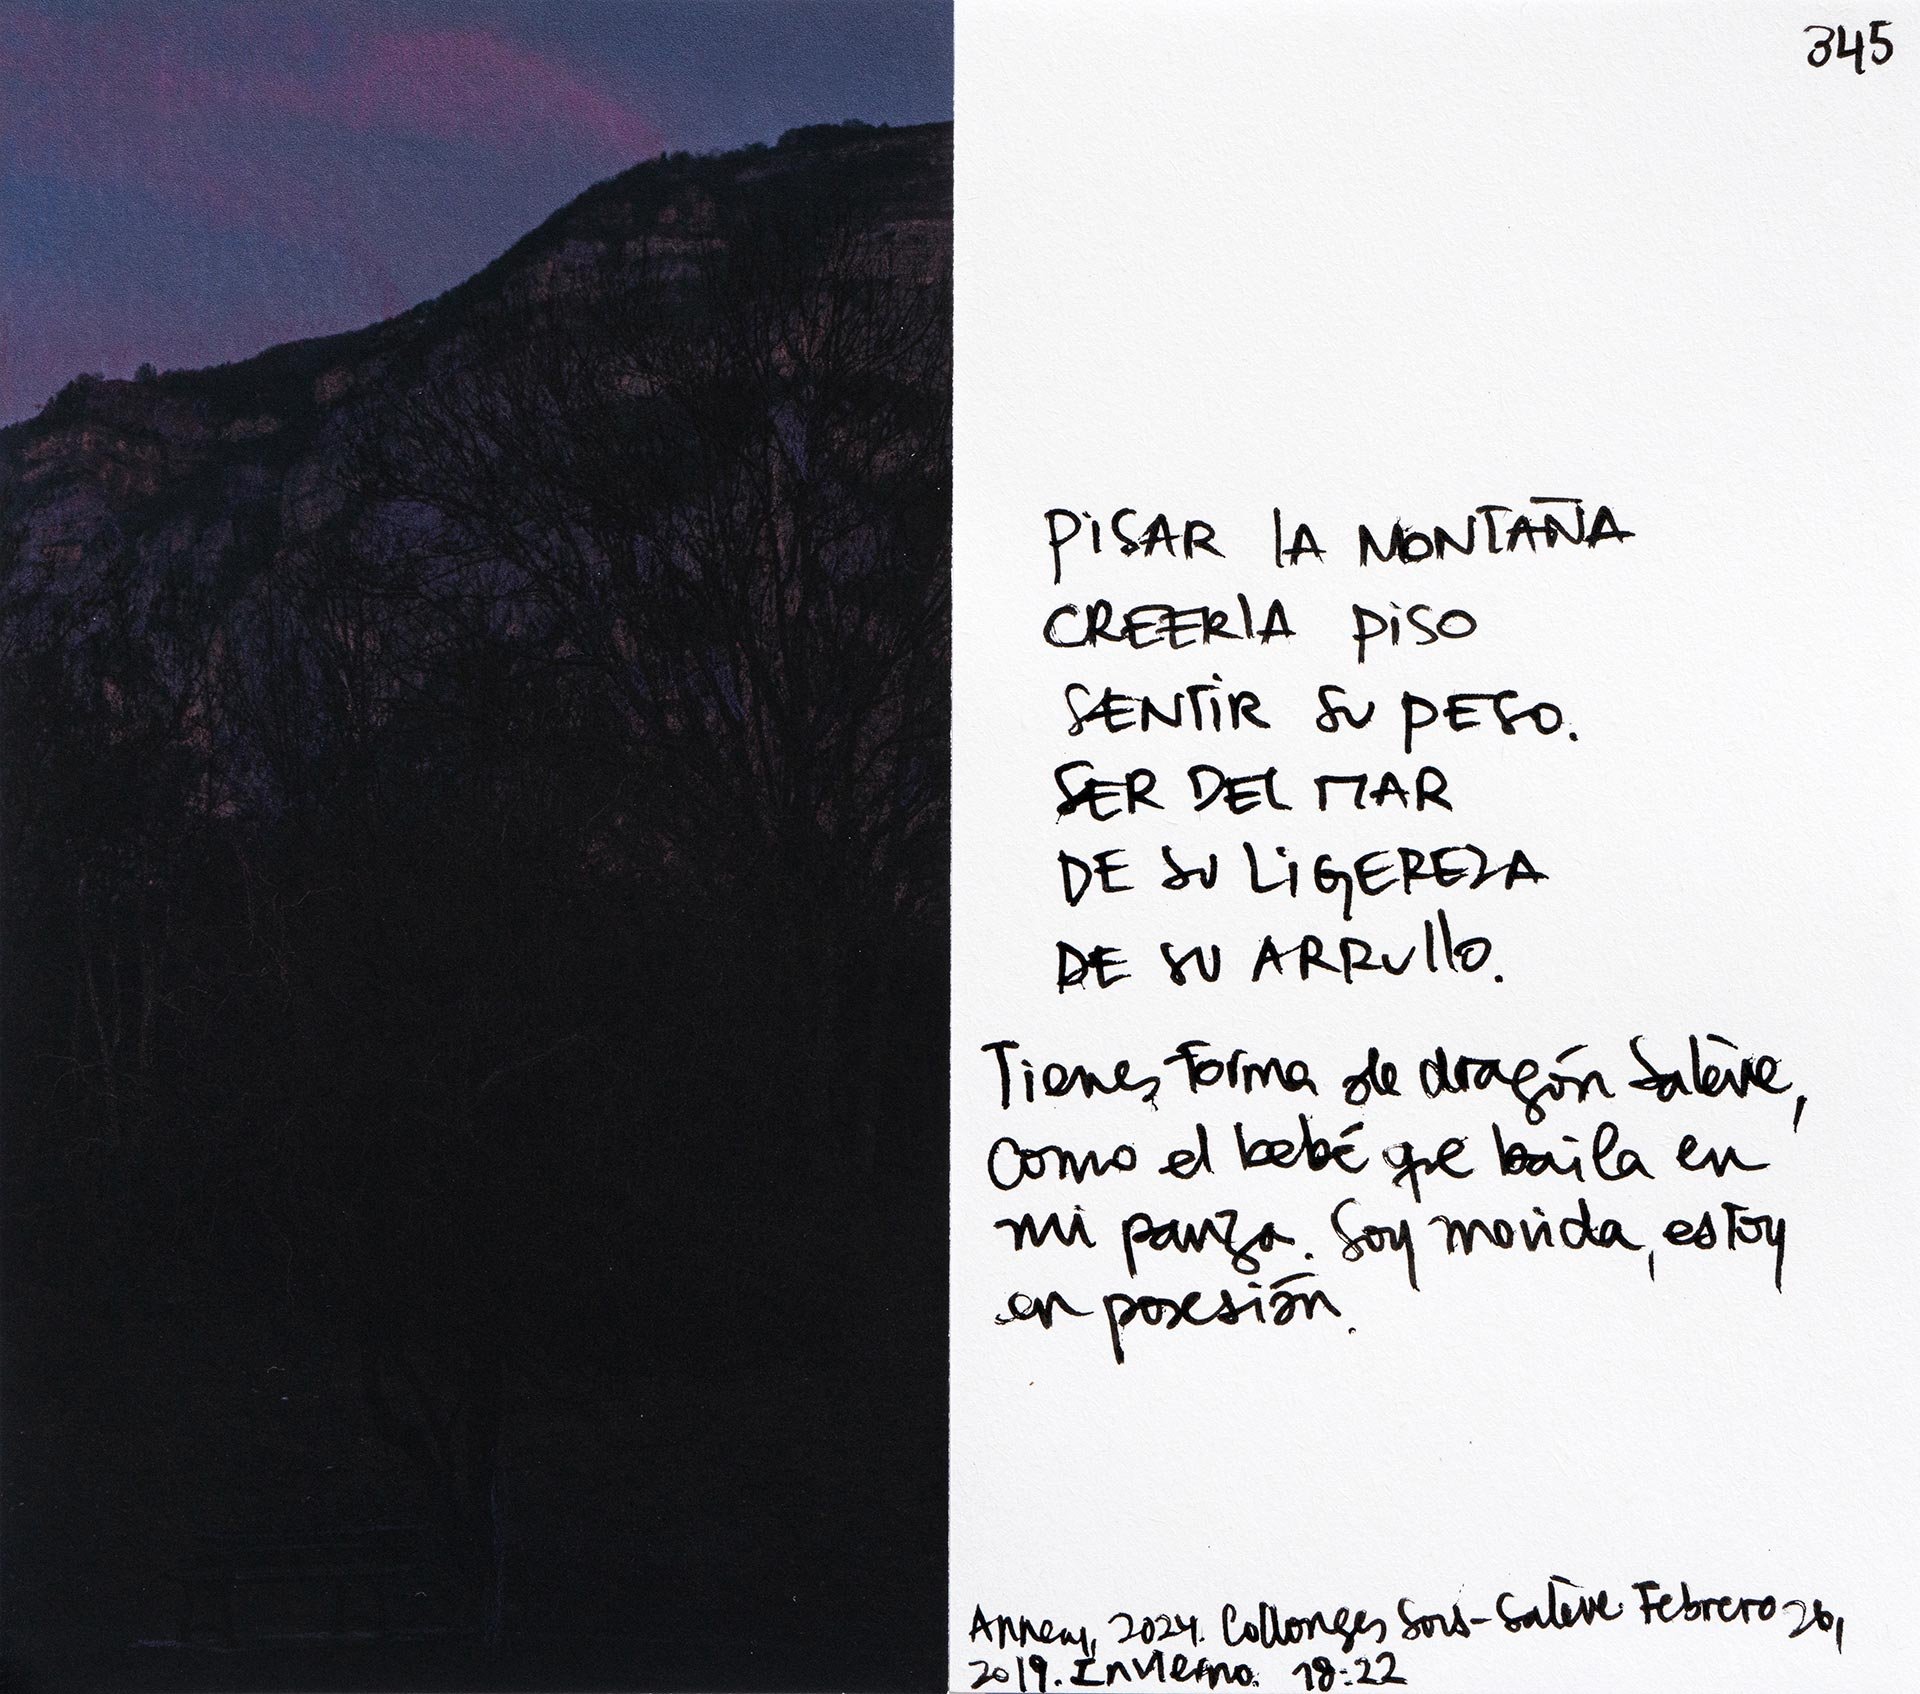 345
PISAR LA MONTAÑA
CREERLA PISO
SENTIR SU PESO.
SER DEL MAR
DE SU LIGEREZA
DE SU ARRULLO.
Tienes forma de dragón Salève,
como el bebé que baila en
mi panza. Soy movida, estoy
en posesión.
Annecy, 2024. Collonges Sous-Salève Febrero 26,
2019. Invierno. 18:22